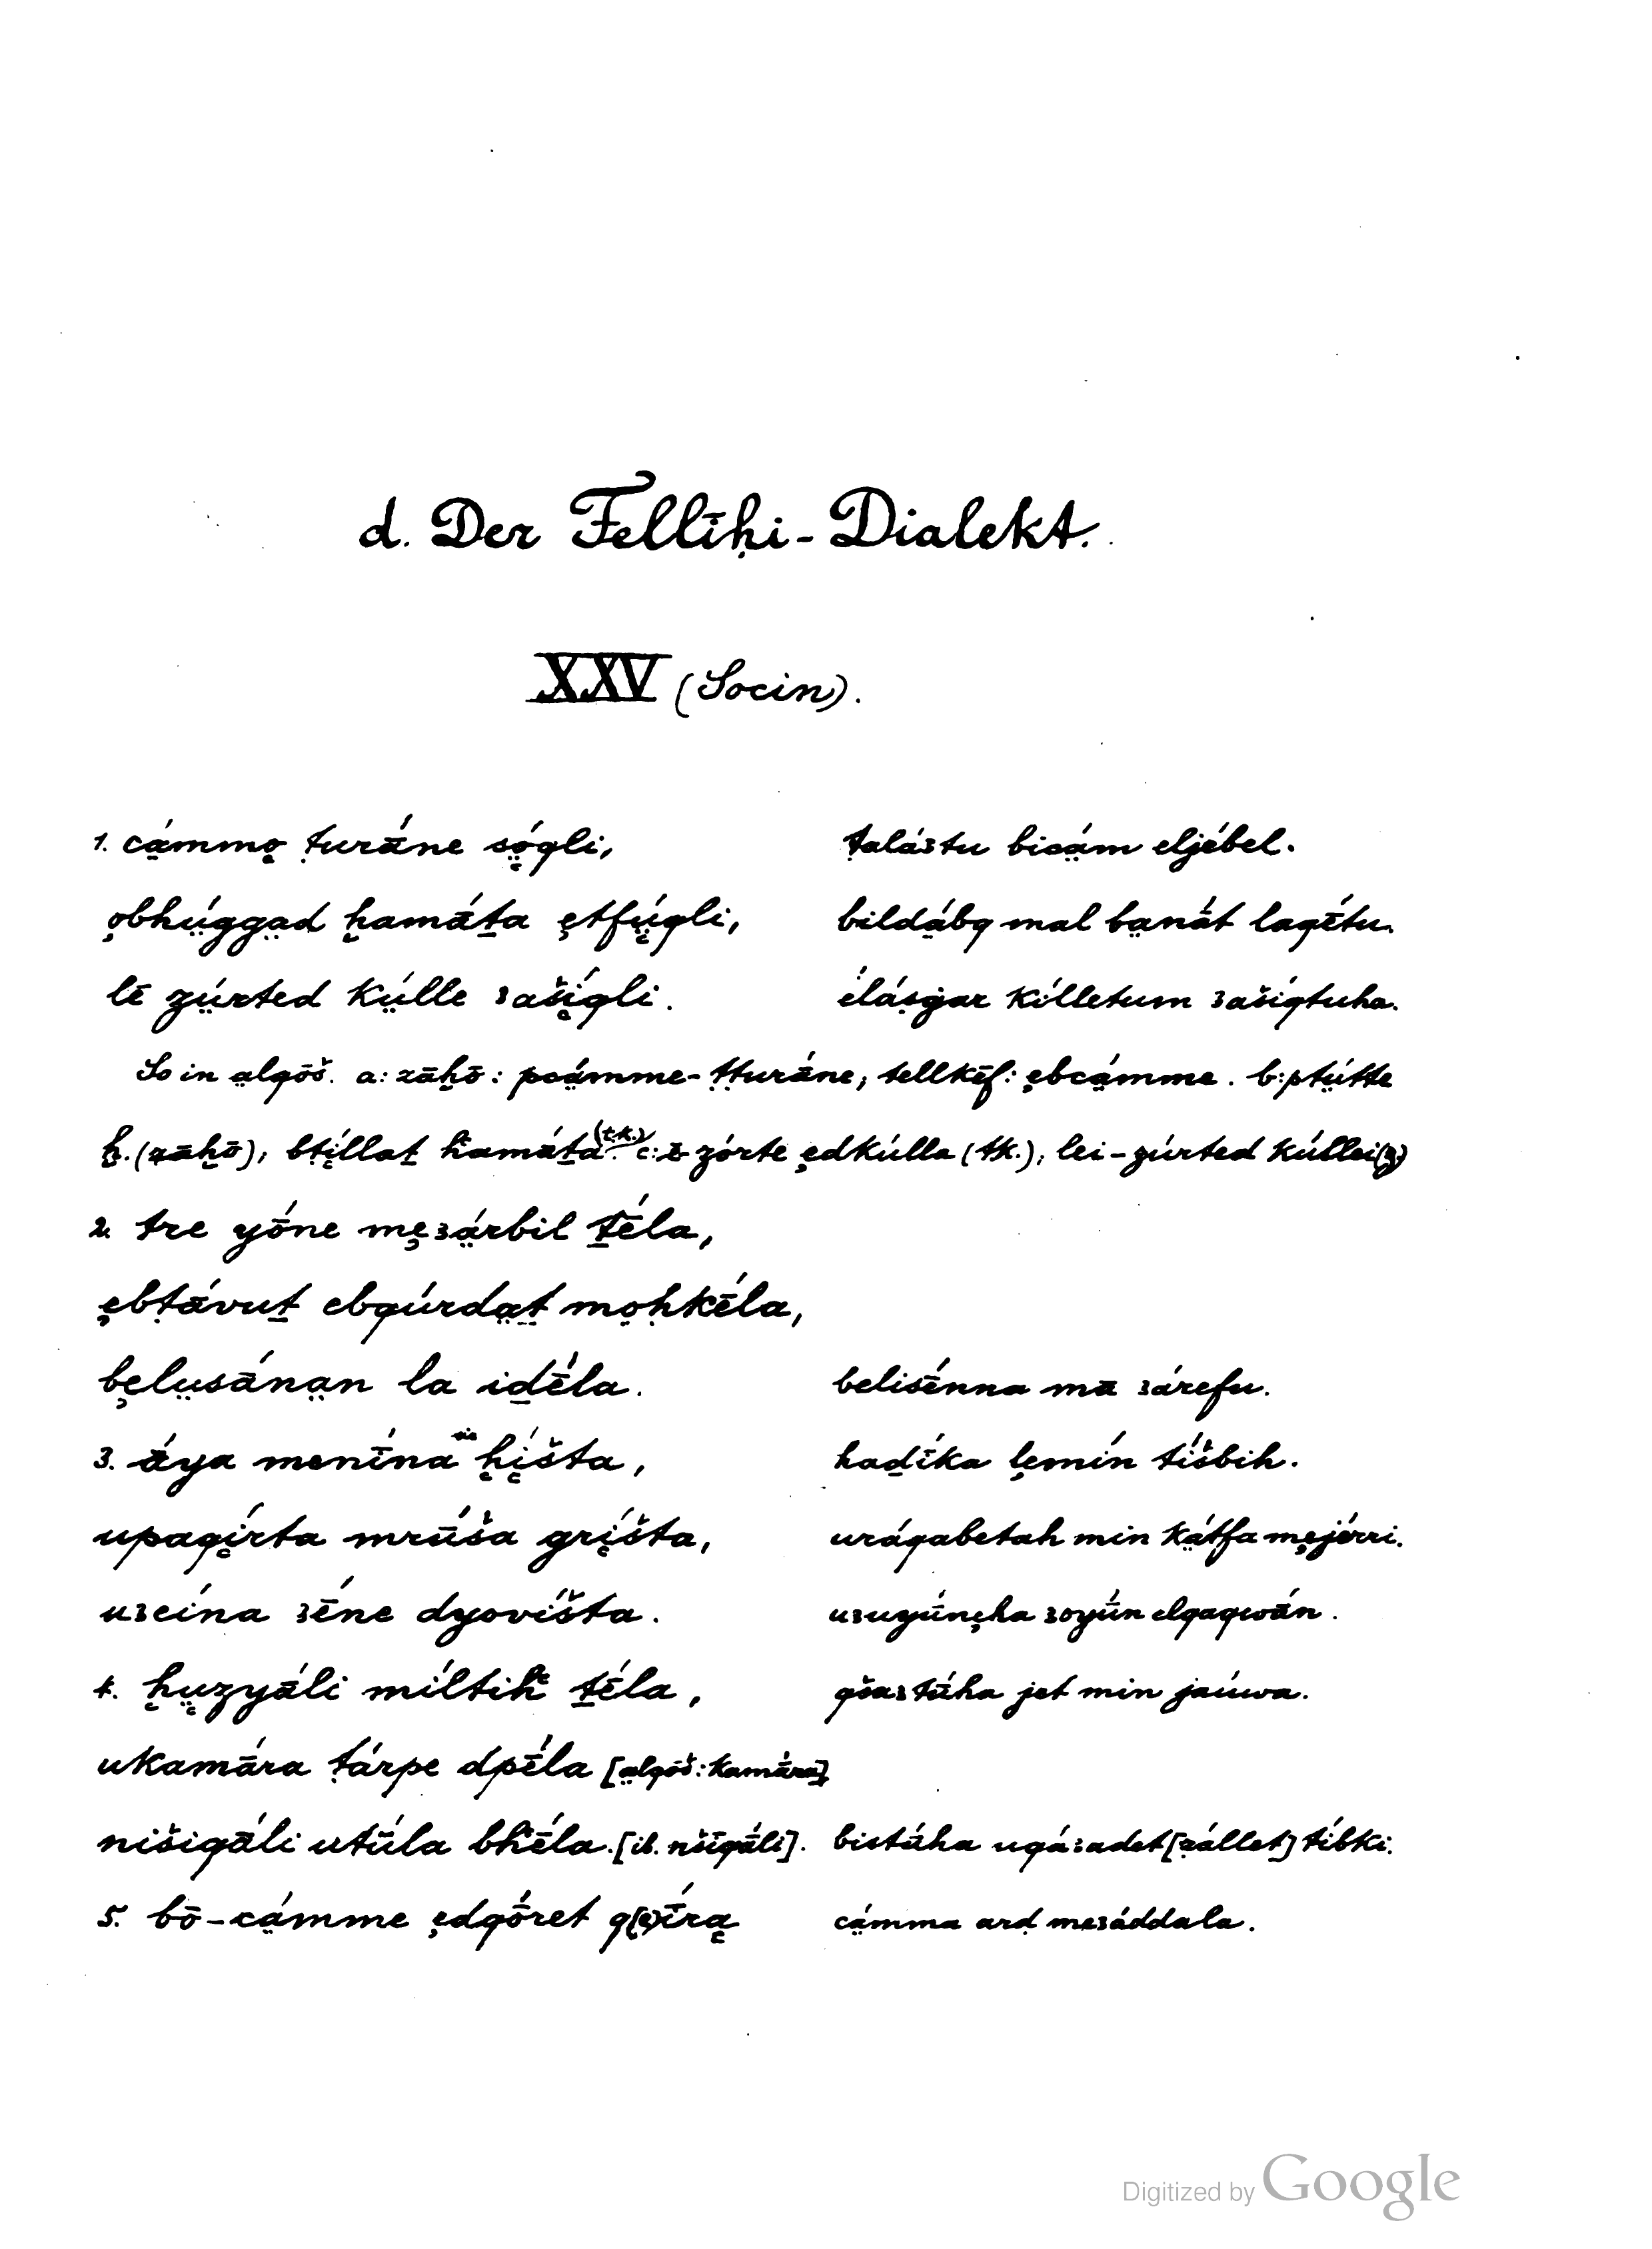 d. Der Fellīḥi-Dialekt.
XXV (Socin).
1. cạ̈́mmo̤ ṭurā́ne sọ́qli, ṭaláɜtu bicạ̈́m eljébel.
o̧bhṳ́gga̤d ḫamā́ṯa ȩtfṳ́qli, bildá̤bq mal ba̤nā́t laqētu.
lē zṳ́rted kṳ́lle ɜašíqli. élásġar kílletum ɜašíqtuha.
So in a̤lqōš. a: zāḫō: pcá̤mme-ṭṭurā́ne, tellkēf: ȩbcá̤mme. b: ptṳ́tte
ḫ. (zāḫō), bṭíllaṯ ḣamā́ṯa (t.k.). c: ē zórte ȩdkúlla (tk.), lei-zúrted kúllei(z)
2. tre yṓne mȩɜá̤rbil ṯḗla,
ȩbṭā́vuṯ ebqúrda̤ṯ mo̤ḥkḗla,
bȩlṳsā́na̤n la iḏḗla. belisḗnna mā ɜárefu.
3. ā́ya menī́na ḫíšta, haḏíka lȩmín tíšbih.
upaqírta mrū́ša gríšta, uráqabetah min ká̤tfa mȩjérri.
uɜeína ɜḗne dyovíšta. uɜuyū́nȩha ɜoyū́n elqaqwān.
4. ḫṳzyā́li míltiḣ ṯḗla, qšaɜtū́ha jet min jaúwa.
ukamā́ra ṭárpe dpḗla [a̤lqōš: kamā́ra]
nišiqā́li utū́la bḣḗla. [ib. nšīqā́li]. bistū́ha uqáɜadet [zállet] tíbki.
5. bō-cá̤mme ȩdqṓret q(e)ī́ra̤ cá̤mma arḍ meɜáddala.
Digitized by Google